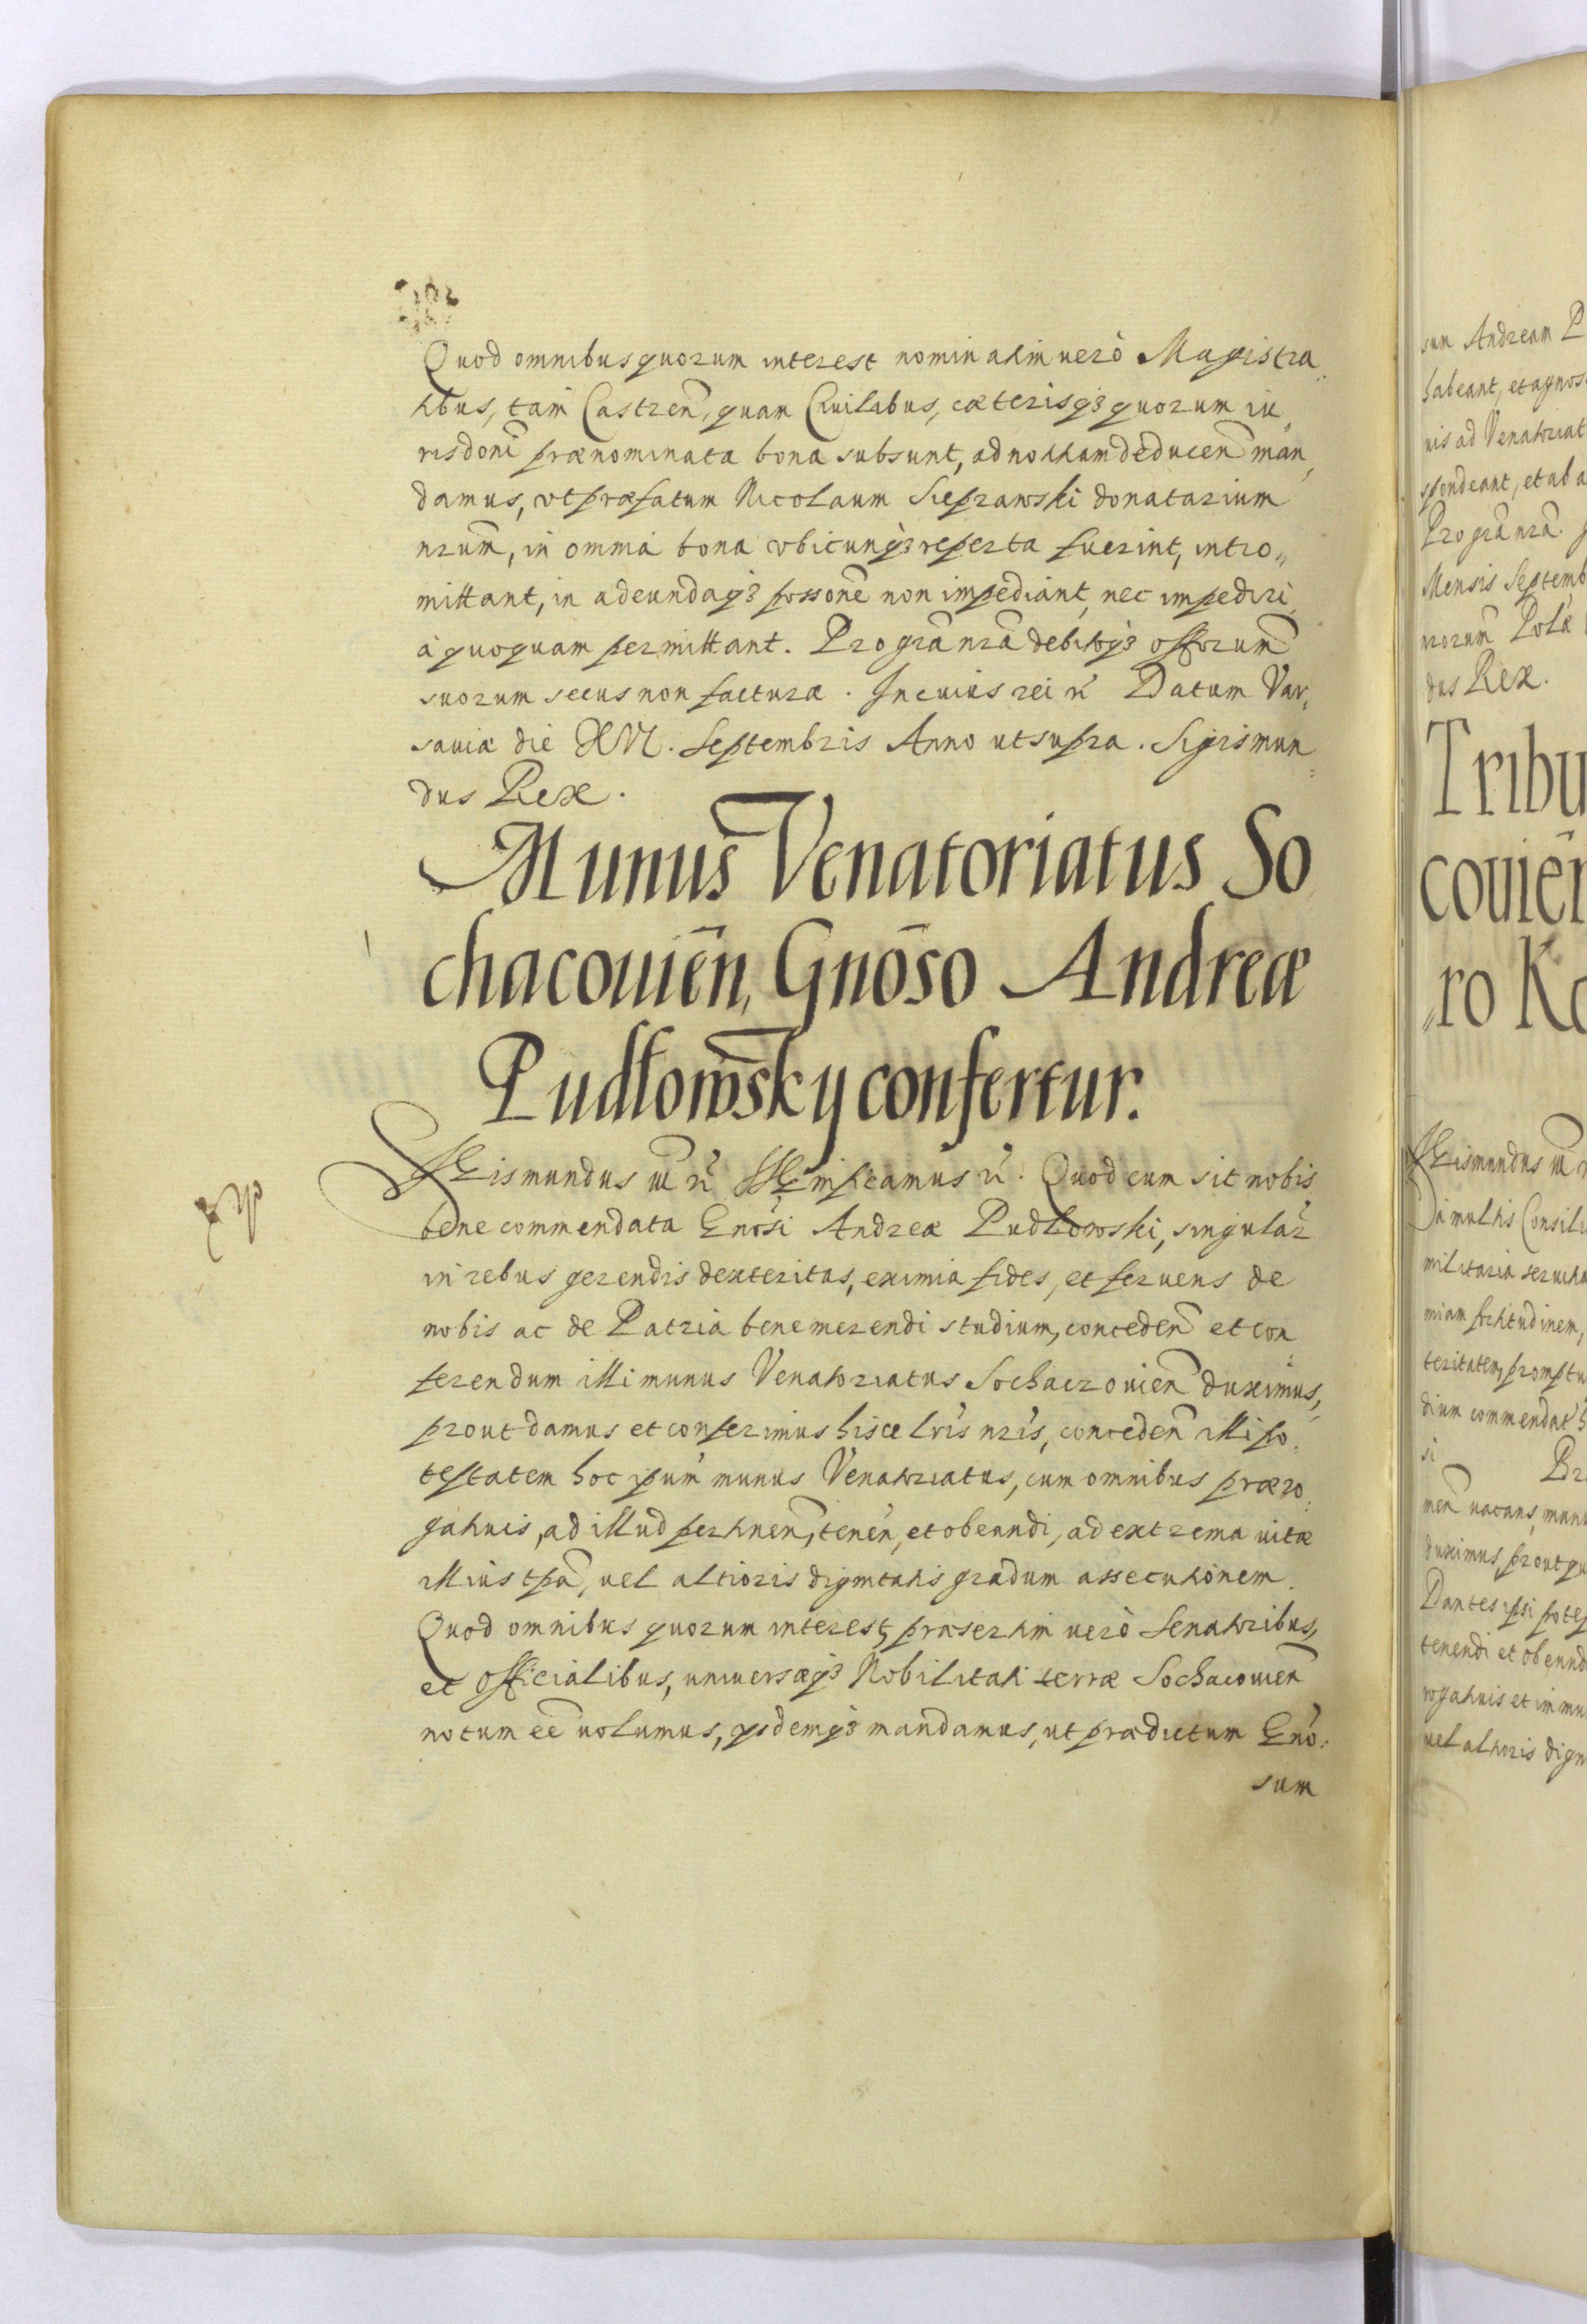 Quod omnibus quorum interest nominatim uerò Magistra
tibus, tam Castren, quam Ciuilibus, cæterisq3 quorum iu
risdoni prænominata bona subsunt, ad notitiam deducen man
damus, vt præfatum Nicolaum Sieprawski donatarium
nrum, in omnia bona vbicunq3 reperta fuerint, intro
mittant, in adeundaq3 possone non impediant, nec impediri
à quoquam permittant. Pro gra nra debitoq3 offorum
suorum secus non facturæ. In cuius rei rc Datum Var
sauiæ die XVI. Septembris Anno ut supra. Sigismun
dus Rex.
Munus Venatoriatus So
chacouien, Gnoso Andreæ
Pudłowsky confertur.
Sigismundus III rc Significamus rc. Quod cum sit nobis
bene commendata Gnosi Andreæ Pudłowski, singular
in rebus gerendis dexteritas, eximia fides, et feruens de
nobis ac de Patria benemerendi studium, conceden et con
ferendum illi munus Venatoriatus Sochaczouien duximus,
prout damus et conferimus hisce lris nris, conceden illi po
testatem hoc ipsum munus Venatoriatus, cum omnibus præro
gatiuis, ad illud pertinen, tenen, et obeundi, ad extrema uitæ
illius tpa, uel altioris dignitatis gradum assecutionem.
Quod omnibus quorum interest, præsertim uerò Senatoribus,
et Officialibus, uniuersæq3 Nobilitati terræ Sochacouien
notum ee uolumus, ysdemq3 mandamus, ut prædictum Gno
sum
sum Andream P
habeant, et agnos
uis ad Venatoriat
spondeant, et ab a
Pro gra nra.
Mensis Septemb
nrorum Polæ
dus Rex.
Tribu
couien
ro Ko
Sigismundus III r
à multis Consil
militaria seruitia
miam fortitudinem,
teritatem, promptu
dium commendat
si
men uacans, mun
duximus, prout qu
Dantes ipsi potes
tenendi et obeund
rogatiuis et immu
uel altioris dign